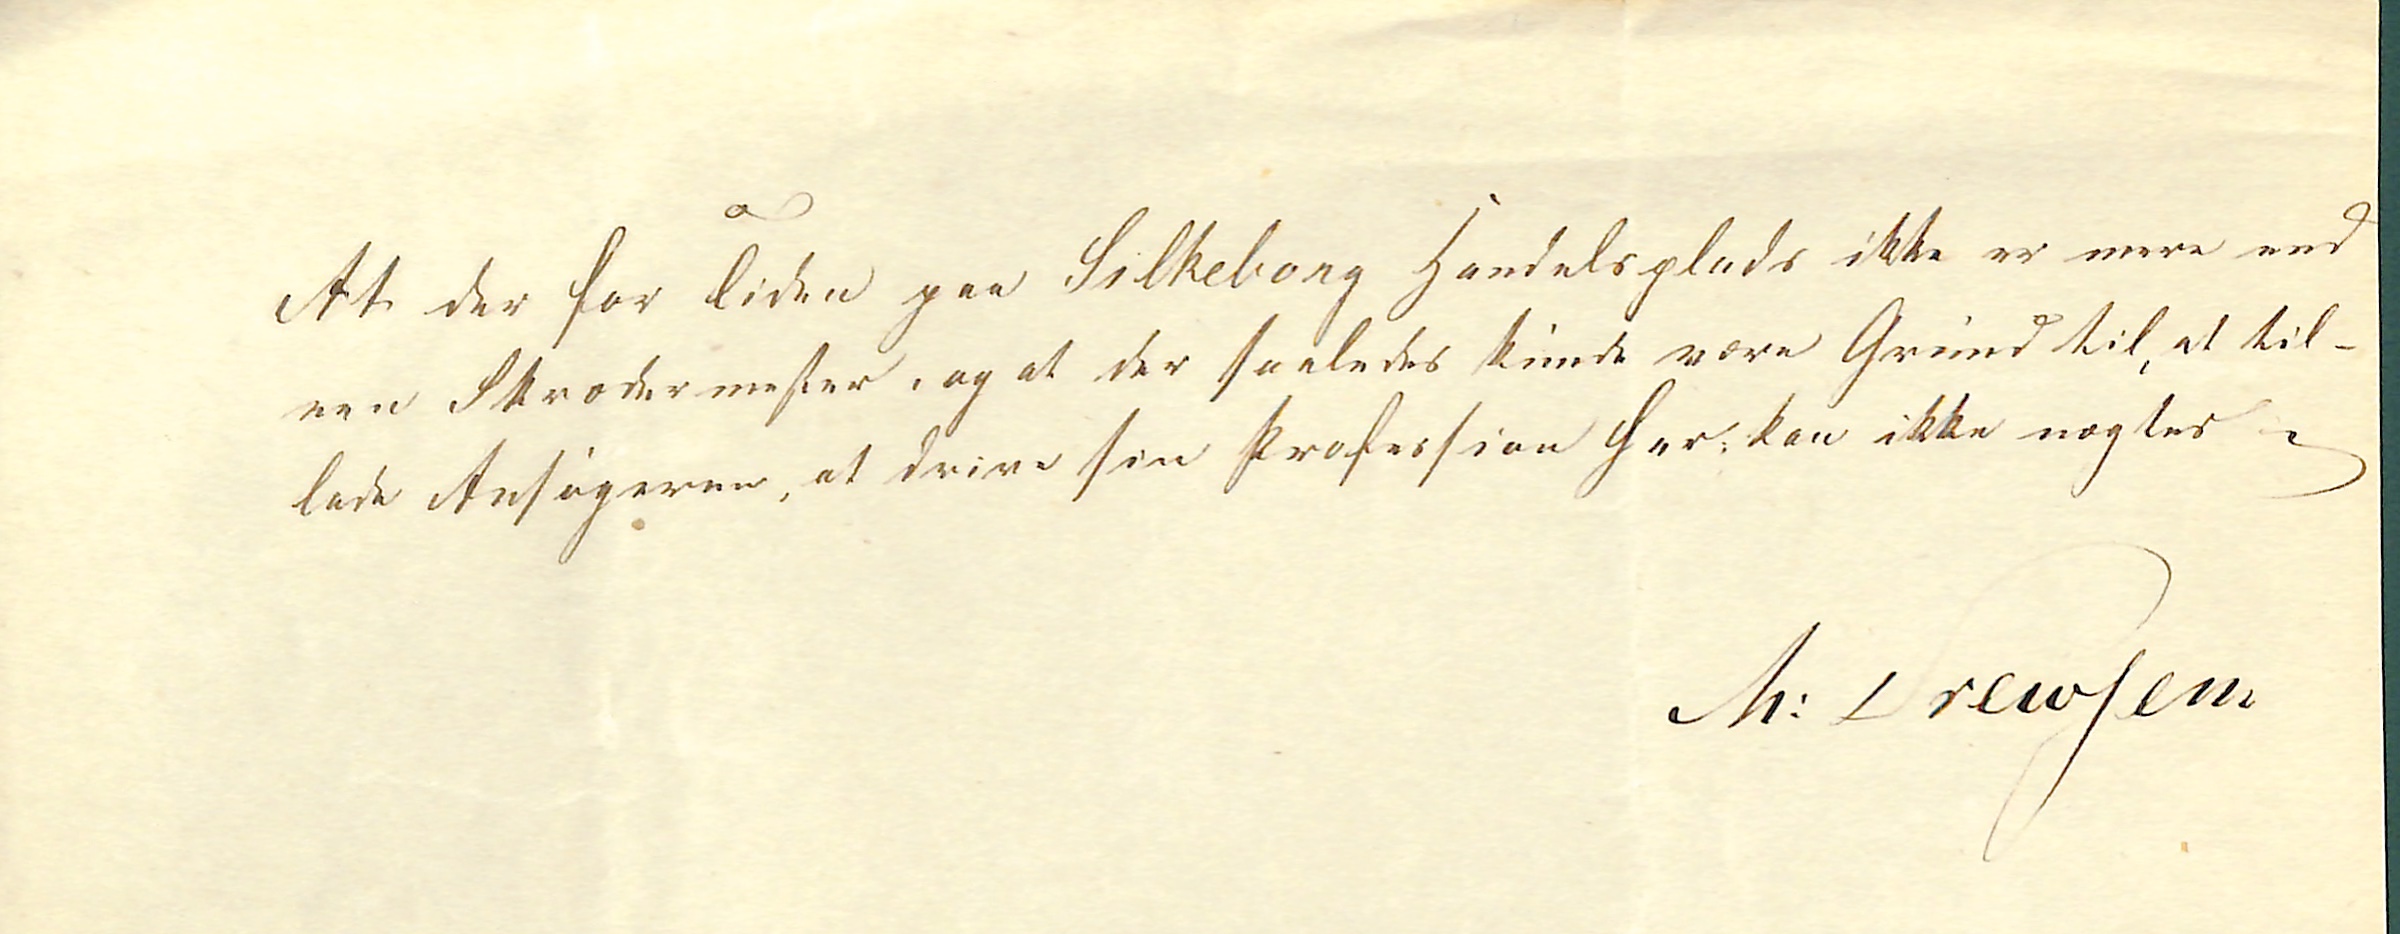 At der for Tiden paa Silkeborg Handelsplads ikke er mere end
een Skrædermester, og at der saaledes kunde være Grund til, at til-
lade Ansøgeren, at drive sin Profession her, kan ikke nægtes
M: Drewsen